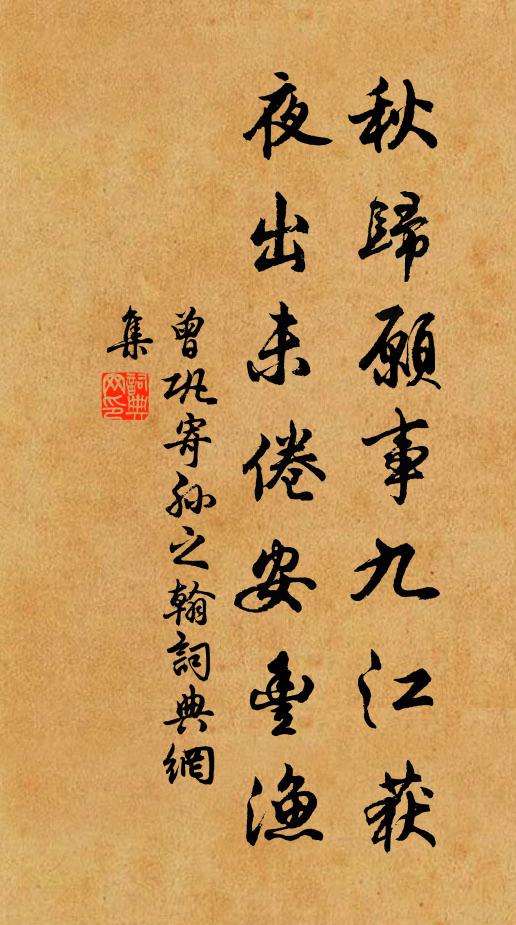 秋歸願事九江获
夜出未倦安豊漁
曾巩寄孙之翰詞典網
集
詞典網印